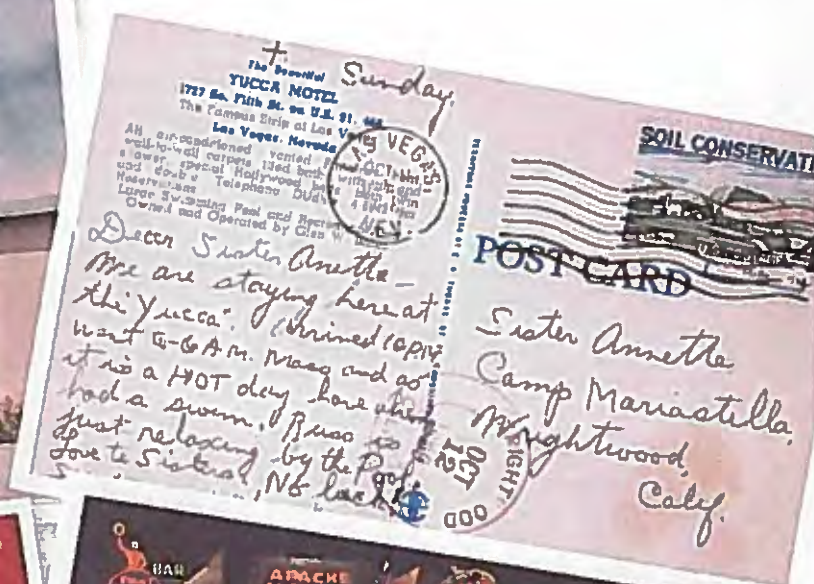 +
Sunday,
The Beautiful
YUCCA MOTEL
1727 So. Fifth St. on U.S. 91,
The Famous Strip at Las
Las Vegas, Nevada
All air-conditioned vented
wall-to-wall carpets, tiled bath with tub and
shower, special Hollywood beds
and double Telephone
Reservations
Large Swimming Pool and
Owned and Operated by Glen W
LAS VEGAS
OCT
NEV.
Dear Sister Anette —
We are staying here at
the "Yucca". Arrived 10PM
went to 6 A.M. Mass and as
it is a HOT day have
had a swim, Russ is
just relaxing by the Pool
Love to Sisters, No luck
SOIL CONSERVATI
POST CARD
Sister Annette
Camp Mariastella,
Wrightwood,
Calif.
OCT
12
BAR
APACHE